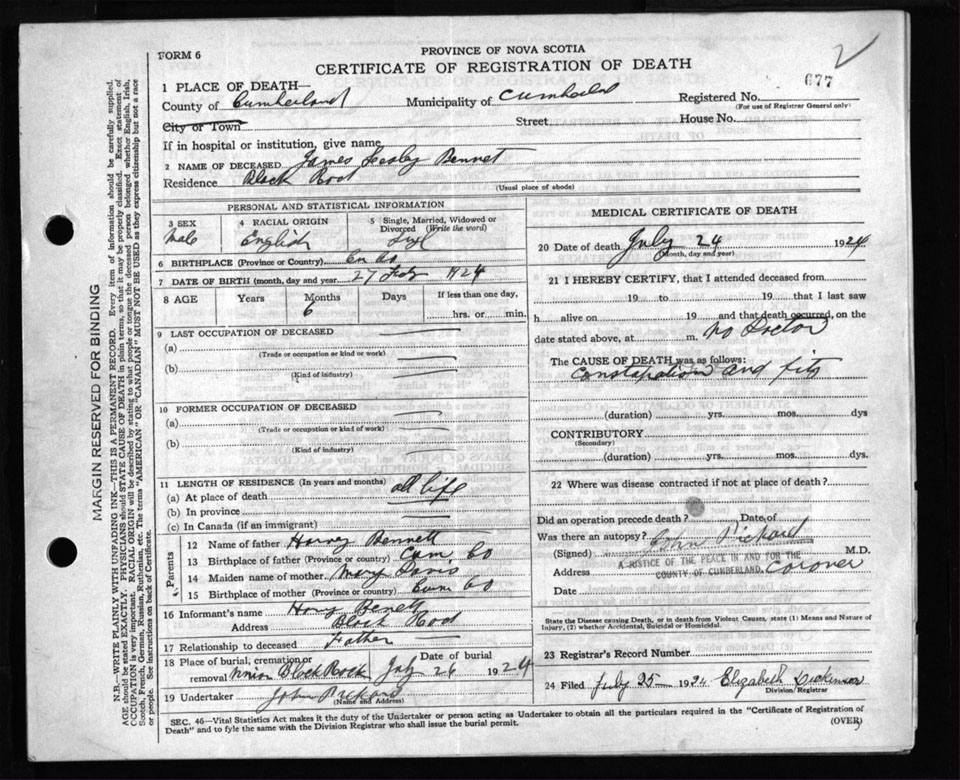 FORM 6
PROVINCE OF NOVA SCOTIA
CERTIFICATE OF REGISTRATION OF DEATH
2
677
1 PLACE OF DEATH—
County of Cumberland Municipality of Registered No.
(For use of Registrar General only)
City or Town Street House No.
If in hospital or institution, give name
2 NAME OF DECEASED James Bennet
Residence Block Rod
(Usual place of abode)
PERSONAL AND STATISTICAL INFORMATION
3 SEX Male
4 RACIAL ORIGIN English
5 Single, Married, Widowed or Divorced (Write the word)
6 BIRTHPLACE (Province or Country)
7 DATE OF BIRTH (month, day and year) 27 1924
8 AGE Years Months 6 Days If less than one day, hrs. or min.
9 LAST OCCUPATION OF DECEASED
(a)
(Trade or occupation or kind or work)
(b)
(Kind of industry)
10 FORMER OCCUPATION OF DECEASED
(a)
(Trade or occupation or kind of work)
(b)
(Kind of industry)
11 LENGTH OF RESIDENCE (In years and months)
(a) At place of death all life
(b) In province
(c) In Canada (if an immigrant)
Parents
12 Name of father Harvey Bennett
13 Birthplace of father (Province or country) Cum Co
14 Maiden name of mother Mary Davis
15 Birthplace of mother (Province or country) Cum Co
16 Informant's name Benett
Address Block Rod
17 Relationship to deceased Father
18 Place of burial, cremation or removal Block Rock July 26 Date of burial 1924
19 Undertaker John Pickard
(Name and Address)
MEDICAL CERTIFICATE OF DEATH
20 Date of death July 24 1924
(Month, day and year)
21 I HEREBY CERTIFY, that I attended deceased from
19 to 19 that I last saw
h alive on 19 and that death occured, on the
date stated above, at m. No Doctor
The CAUSE OF DEATH was as follows:
Constapation and fits
(duration) yrs. mos. dys
CONTRIBUTORY
(Secondary)
(duration) yrs. mos. dys.
22 Where was disease contracted if not at place of death?
Did an operation precede death? Date of
Was there an autopsy?
(Signed) John Pickard M.D.
A JUSTICE OF THE PEACE IN AND FOR THE
COUNTY OF CUMBERLAND.
Address Coroner
Date
State the Disease causing Death, or in death from Violent Causes, state (1) Means and Nature of Injury, (2) whether Accidental, Suicidal or Homicidal.
23 Registrar's Record Number
24 Filed July 25 1924 Elizabeth
Division Registrar
SEC. 46—Vital Statistics Act makes it the duty of the Undertaker or person acting as Undertaker to obtain all the particulars required in the "Certificate of Registration of
Death" and to fyle the same with the Division Registrar who shall issue the burial permit.
(OVER)
MARGIN RESERVED FOR BINDING
N.B.—WRITE PLAINLY WITH UNFADING INK—THIS IS A PERMANENT RECORD. Every item of information should be carefully supplied.
AGE should be stated EXACTLY. PHYSICIANS should STATE CAUSE OF DEATH in plain terms, so that it may be properly classified. Exact statement of
OCCUPATION is very important. RACIAL ORIGIN will be described by stating to what people or tongue the deceased person belonged whether English, Irish,
Scotch, French, German, Russian, Ruthenian, etc. The terms "AMERICAN" OR "CANADIAN" MUST NOT BE USED as they express citizenship but not a race
or people. See instructions on back of Certificate.